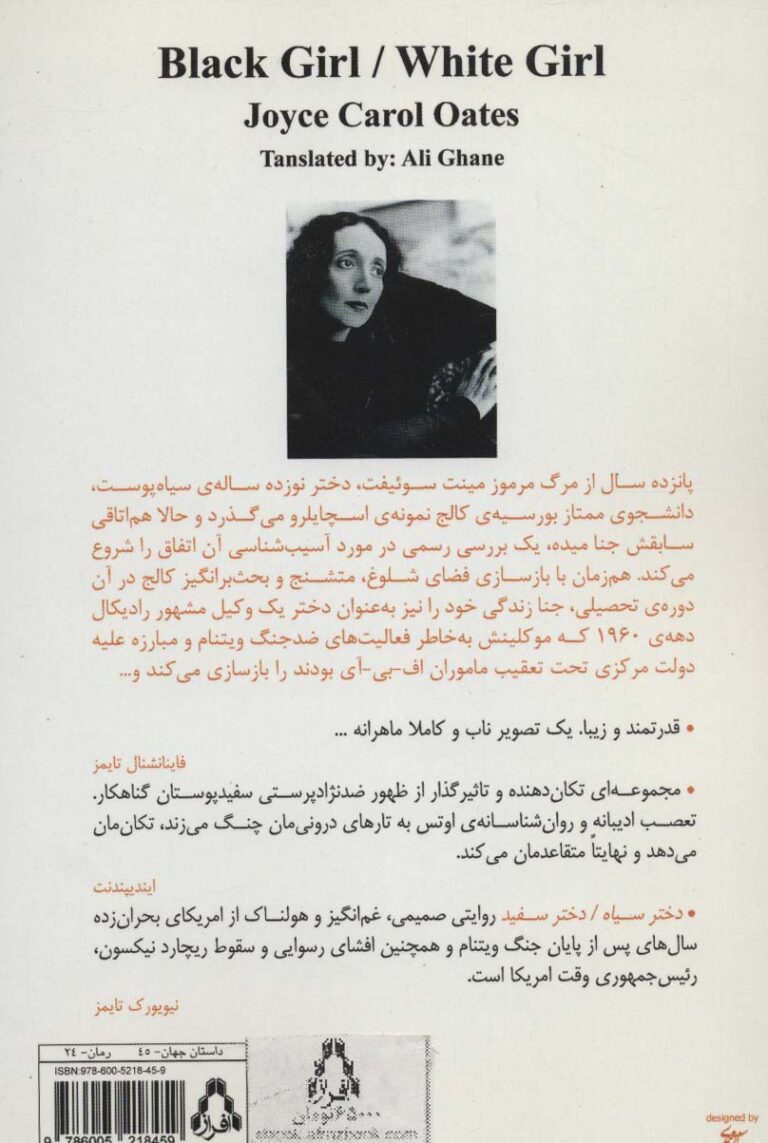 Black Girl / White Girl
Joyce Carol Oates
Tanslated by: Ali Ghane
پانزده سال از مرگ مرموز مینت سوئیفت، دختر نوزده ساله‌ی سیاه‌پوست،
دانشجوی ممتاز بورسیه‌ی کالج نمونه‌ی اسچایلرو می‌گذرد و حالا هم‌اتاقی
سابقش جنا میده، یک بررسی رسمی در مورد آسیب‌شناسی آن اتفاق را شروع
می‌کند. هم‌زمان با بازسازی فضای شلوغ، متشنج و بحث‌برانگیز کالج در آن
دوره‌ی تحصیلی، جنا زندگی خود را نیز به‌عنوان دختر یک وکیل مشهور رادیکال
دهه‌ی ۱۹۶۰ که موکلینش به‌خاطر فعالیت‌های ضدجنگ ویتنام و مبارزه علیه
دولت مرکزی تحت تعقیب ماموران اف-بی-آی بودند را بازسازی می‌کند و...
• قدرتمند و زیبا. یک تصویر ناب و کاملا ماهرانه ...
فاینانشنال تایمز
• مجموعه‌ای تکان‌دهنده و تاثیرگذار از ظهور ضدنژادپرستی سفیدپوستان گناهکار.
تعصب ادیبانه و روان‌شناسانه‌ی اوتس به تارهای درونی‌مان چنگ می‌زند، تکان‌مان
می‌دهد و نهایتاً متقاعدمان می‌کند.
ایندیپندنت
• دختر سیاه / دختر سفید روایتی صمیمی، غم‌انگیز و هولناک از امریکای بحران‌زده
سال‌های پس از پایان جنگ ویتنام و همچنین افشای رسوایی و سقوط ریچارد نیکسون،
رئیس‌جمهوری وقت امریکا است.
نیویورک تایمز
داستان جهان- ٤٥ رمان- ٢٤
ISBN:978-600-5218-45-9
9 786005 218459
افراز
افراز
۶۵۰۰۰ تومان
designed by